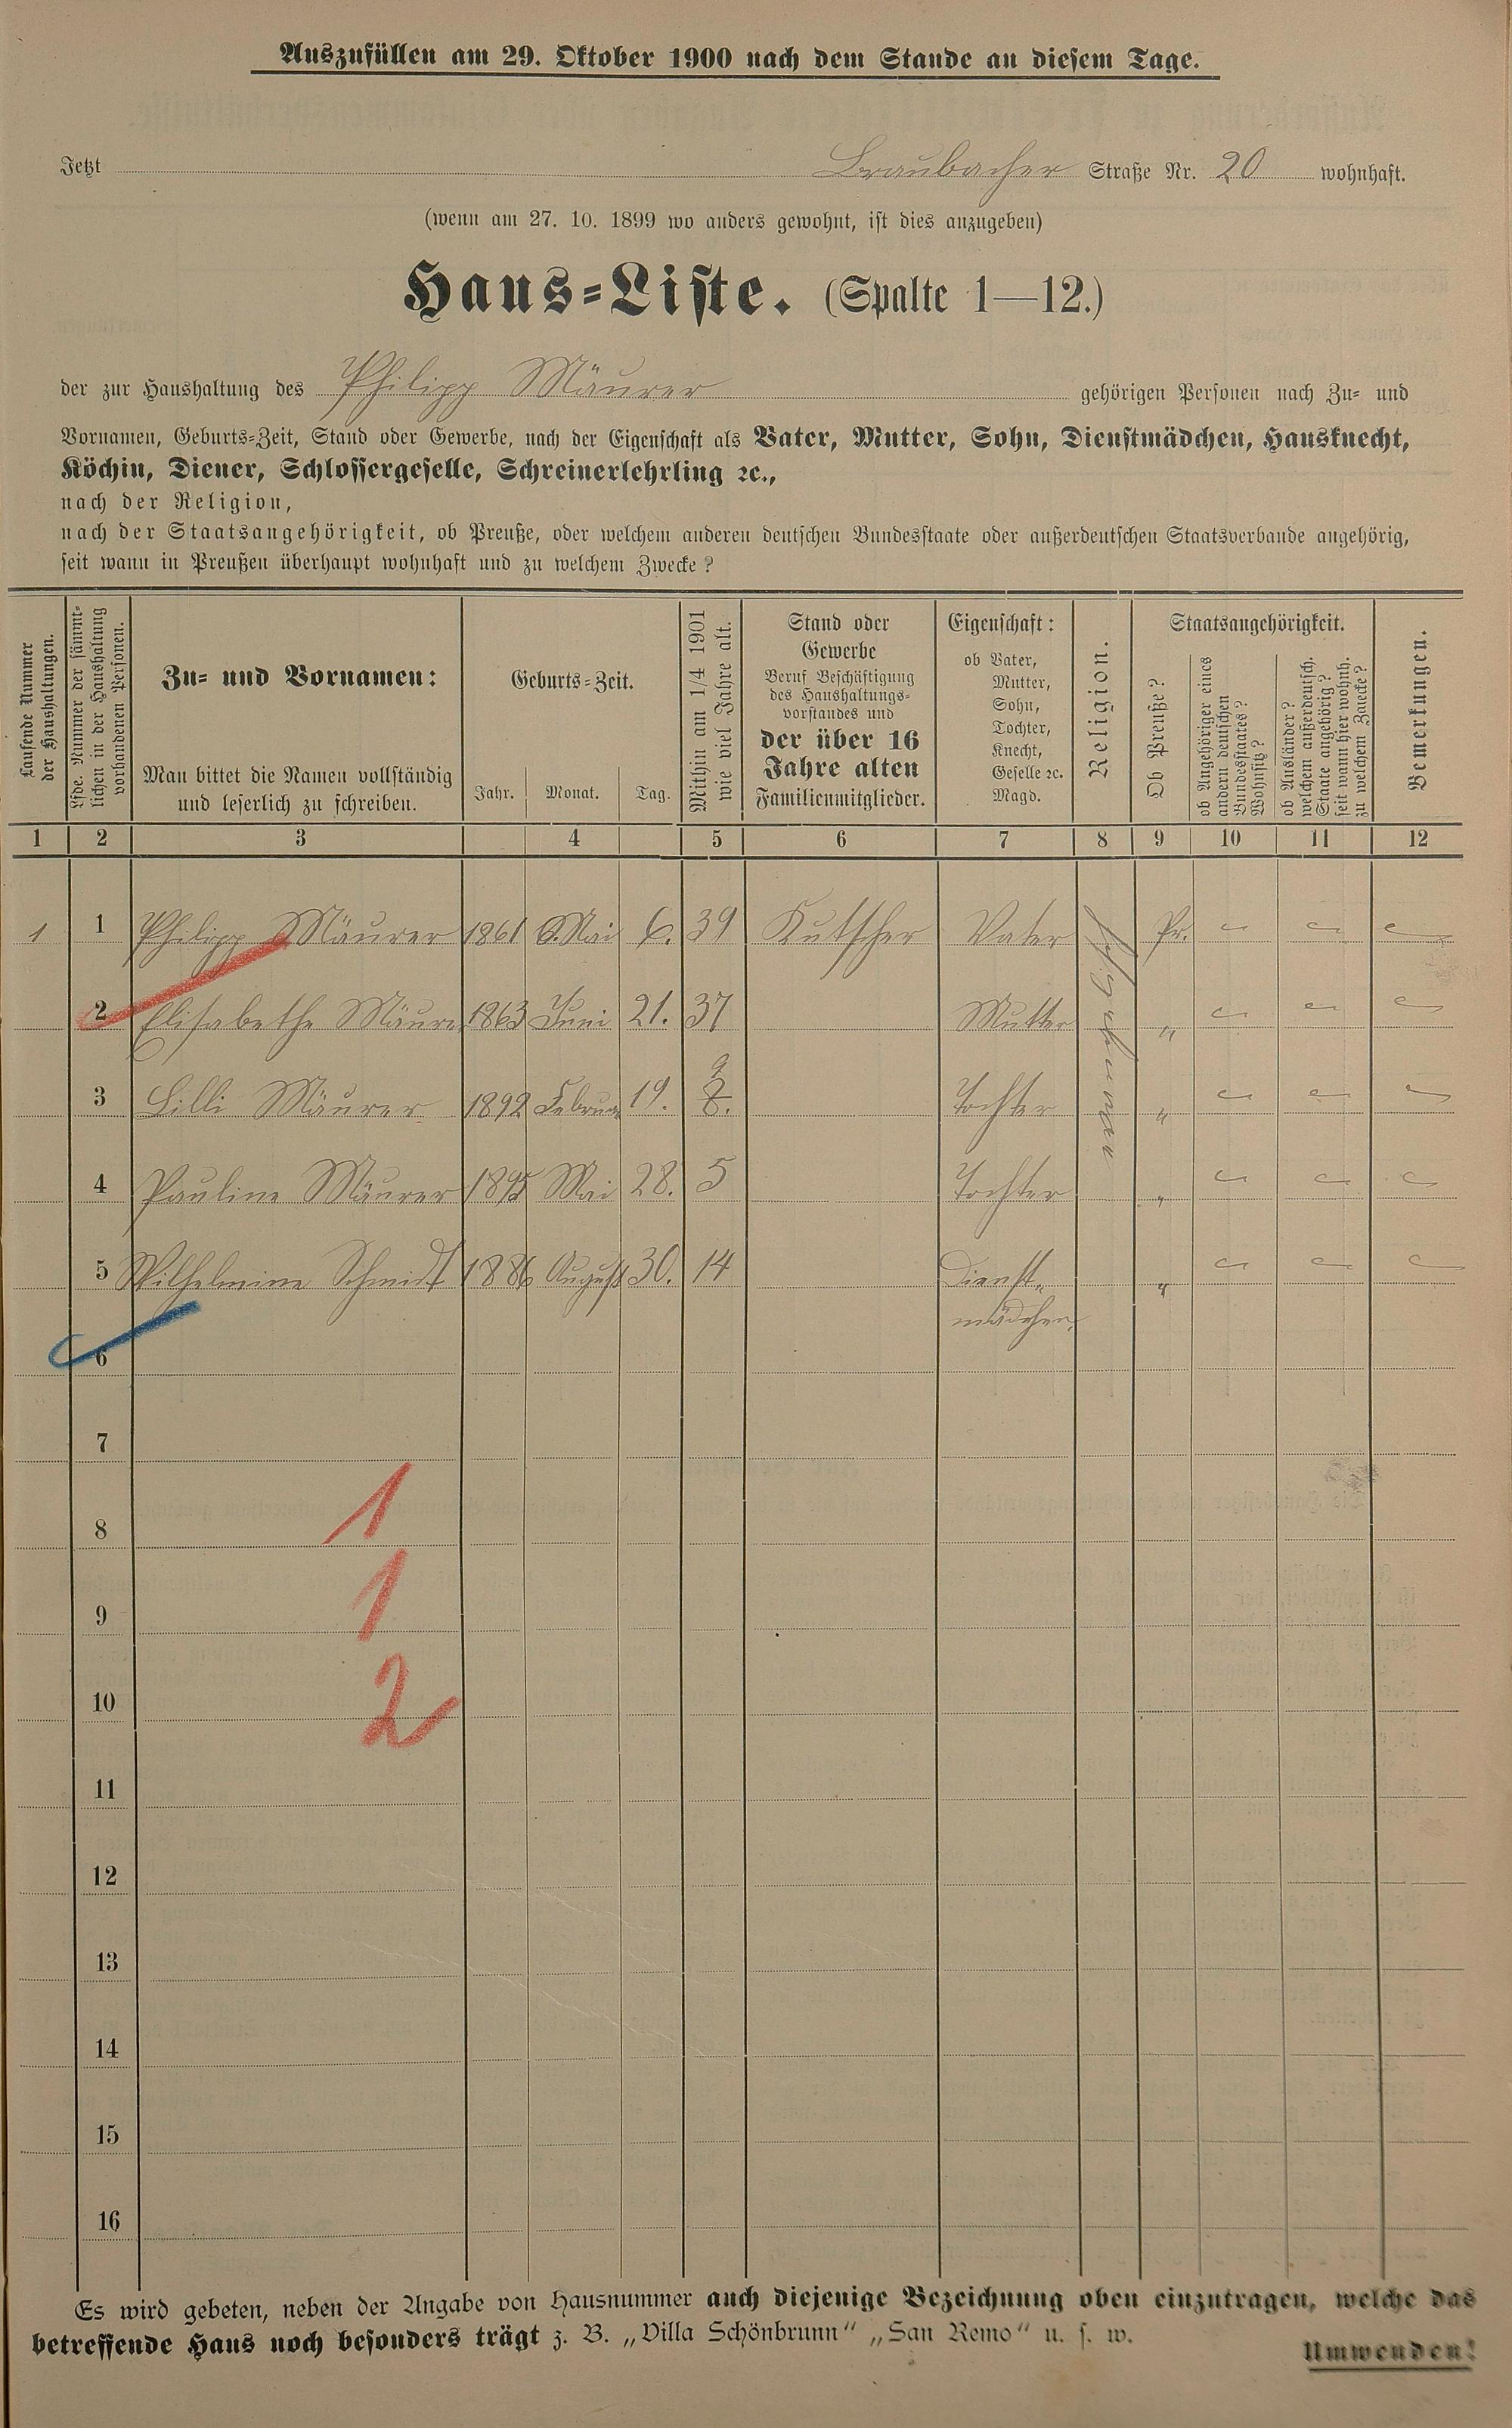 Auszufüllen am 29. Oktober 1900 nach dem Stande an diesem Tage.
Jetzt Braubacher Straße Nr. 20 wohnhaft.
(wenn am 27. 10. 1899 wo anders gewohnt, ist dies anzugeben)
Haus-Liste. (Spalte 1—12.)
der zur Haushaltung des Philipp Mäurer gehörigen Personen nach Zu- und
Vornamen, Geburts-Zeit, Stand oder Gewerbe, nach der Eigenschaft als Vater, Mutter, Sohn, Dienstmädchen, Hausknecht,
Köchin, Diener, Schlossergeselle, Schreinerlehrling ꝛc.,
nach der Religion,
nach der Staatsangehörigkeit, ob Preuße, oder welchem anderen deutschen Bundesstaate oder außerdeutschen Staatsverbande angehörig,
seit wann in Preußen überhaupt wohnhaft und zu welchem Zwecke?
Laufende Nummer
der Haushaltungen.
Lfde. Nummer der sämmt-
lichen in der Haushaltung
vorhandenen Personen.
Zu- und Vornamen:
Man bittet die Namen vollständig
und leserlich zu schreiben.
Geburts-Zeit.
Jahr. Monat. Tag.
Mithin am 1/4 1901
wie viel Jahre alt.
Stand oder
Gewerbe
Beruf Beschäftigung
des Haushaltungs-
vorstandes und
der über 16
Jahre alten
Familienmitglieder.
Eigenschaft:
ob Vater,
Mutter,
Sohn,
Tochter,
Knecht,
Geselle ꝛc.
Magd.
Religion.
Staatsangehörigkeit.
Ob Preuße?
ob Angehöriger eines
andern deutschen
Bundesstaates?
Wohnsitz?
ob Ausländer?
welchem außerdeutsch.
Staate angehörig?
seit wann hier wohnh.
zu welchem Zwecke?
Bemerkungen.
1 2 3 4 5 6 7 8 9 10 11 12
1 1 Philipp Mäurer 1861 Mai 6. 39 Kutscher Vater Pr.
2 Elisabethe Mäurer 1863 Juni 21. 37 Mutter "
3 Lilli Mäurer 1892 Februar 19. 9 8. Tochter "
4 Pauline Mäurer 1895 Mai 28. 5 Tochter "
5 Wilhelmine Schmidt 1886 August 30. 14 Dienst-
mädchen "
6
7
8 1
9 1
10 2
11
12
13
14
15
16
Es wird gebeten, neben der Angabe von Hausnummer auch diejenige Bezeichnung oben einzutragen, welche das
betreffende Haus noch besonders trägt z. B. „Villa Schönbrunn“ „San Remo“ u. s. w.
Umwenden!